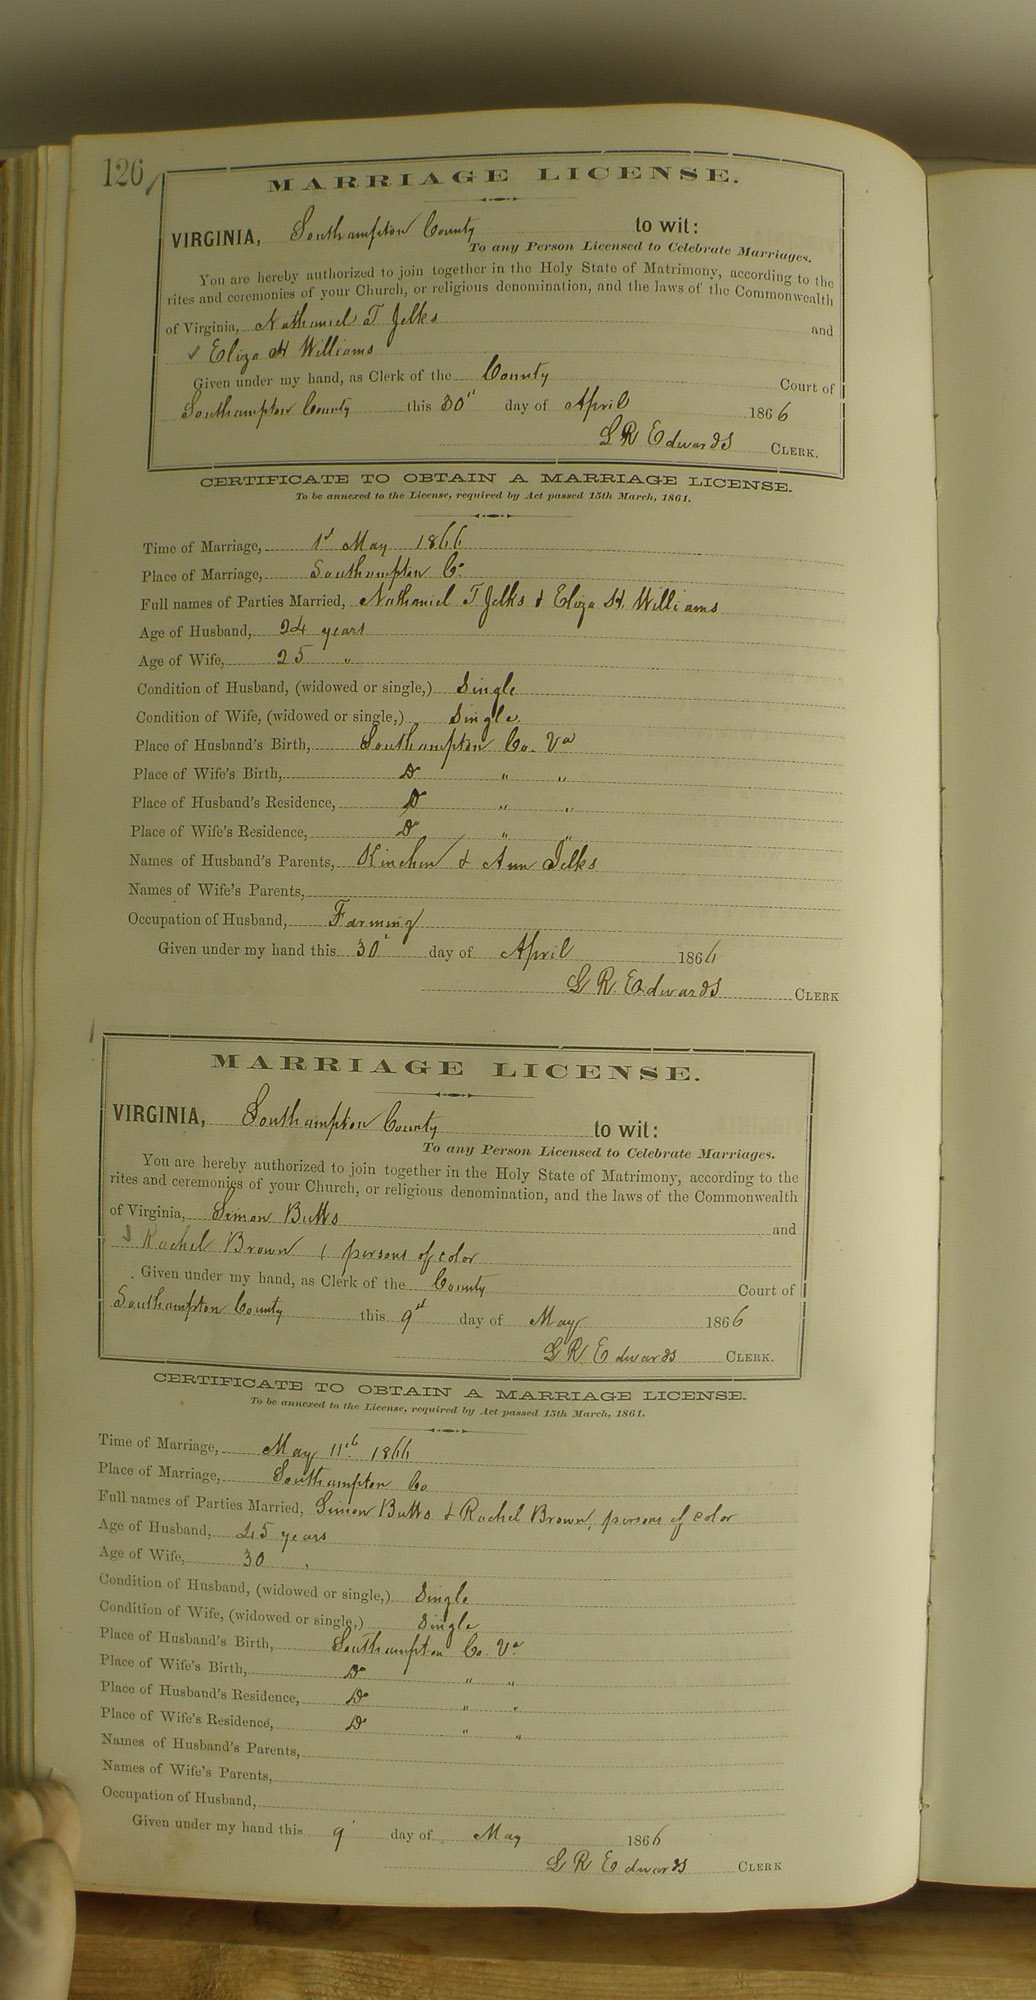 126
MARRIAGE LICENSE.
VIRGINIA, Southampton County to wit:
To any Person Licensed to Celebrate Marriages.
You are hereby authorized to join together in the Holy State of Matrimony, according to the
rites and ceremonies of your Church, or religious denomination, and the laws of the Commonwealth
of Virginia, Nathaniel T Jelks and
✓ Eliza H Williams
Given under my hand, as Clerk of the County Court of
Southampton County this 30" day of April 1866
L R Edwards CLERK.
CERTIFICATE TO OBTAIN A MARRIAGE LICENSE.
To be annexed to the License, required by Act passed 15th March, 1861.
Time of Marriage, 1st May 1866
Place of Marriage, Southampton Co
Full names of Parties Married, Nathaniel T Jelks & Eliza H. Williams
Age of Husband, 24 years
Age of Wife, 25 "
Condition of Husband, (widowed or single,) Single
Condition of Wife, (widowed or single,) Single
Place of Husband's Birth, Southampton Co. Va
Place of Wife's Birth, Do " "
Place of Husband's Residence, Do " "
Place of Wife's Residence, Do " "
Names of Husband's Parents, Kinchen & Ann Jelks
Names of Wife's Parents,
Occupation of Husband, Farming
Given under my hand this 30 day of April 1866
L R Edwards CLERK
MARRIAGE LICENSE.
VIRGINIA, Southampton County to wit:
To any Person Licensed to Celebrate Marriages.
You are hereby authorized to join together in the Holy State of Matrimony, according to the
rites and ceremonies of your Church, or religious denomination, and the laws of the Commonwealth
of Virginia, Simon Butts and
✓ Rachel Brown, persons of color
Given under my hand, as Clerk of the County Court of
Southampton County this 9th day of May 1866
L R Edwards CLERK.
CERTIFICATE TO OBTAIN A MARRIAGE LICENSE.
To be annexed to the License, required by Act passed 15th March, 1861.
Time of Marriage, May 11th 1866
Place of Marriage, Southampton Co
Full names of Parties Married, Simon Butts & Rachel Brown, persons of color
Age of Husband, 45 years
Age of Wife, 30 "
Condition of Husband, (widowed or single,) Single
Condition of Wife, (widowed or single,) Single
Place of Husband's Birth, Southampton Co. Va
Place of Wife's Birth, Do " "
Place of Husband's Residence, Do " "
Place of Wife's Residence, Do " "
Names of Husband's Parents,
Names of Wife's Parents,
Occupation of Husband,
Given under my hand this 9 day of May 1866
L R Edwards CLERK